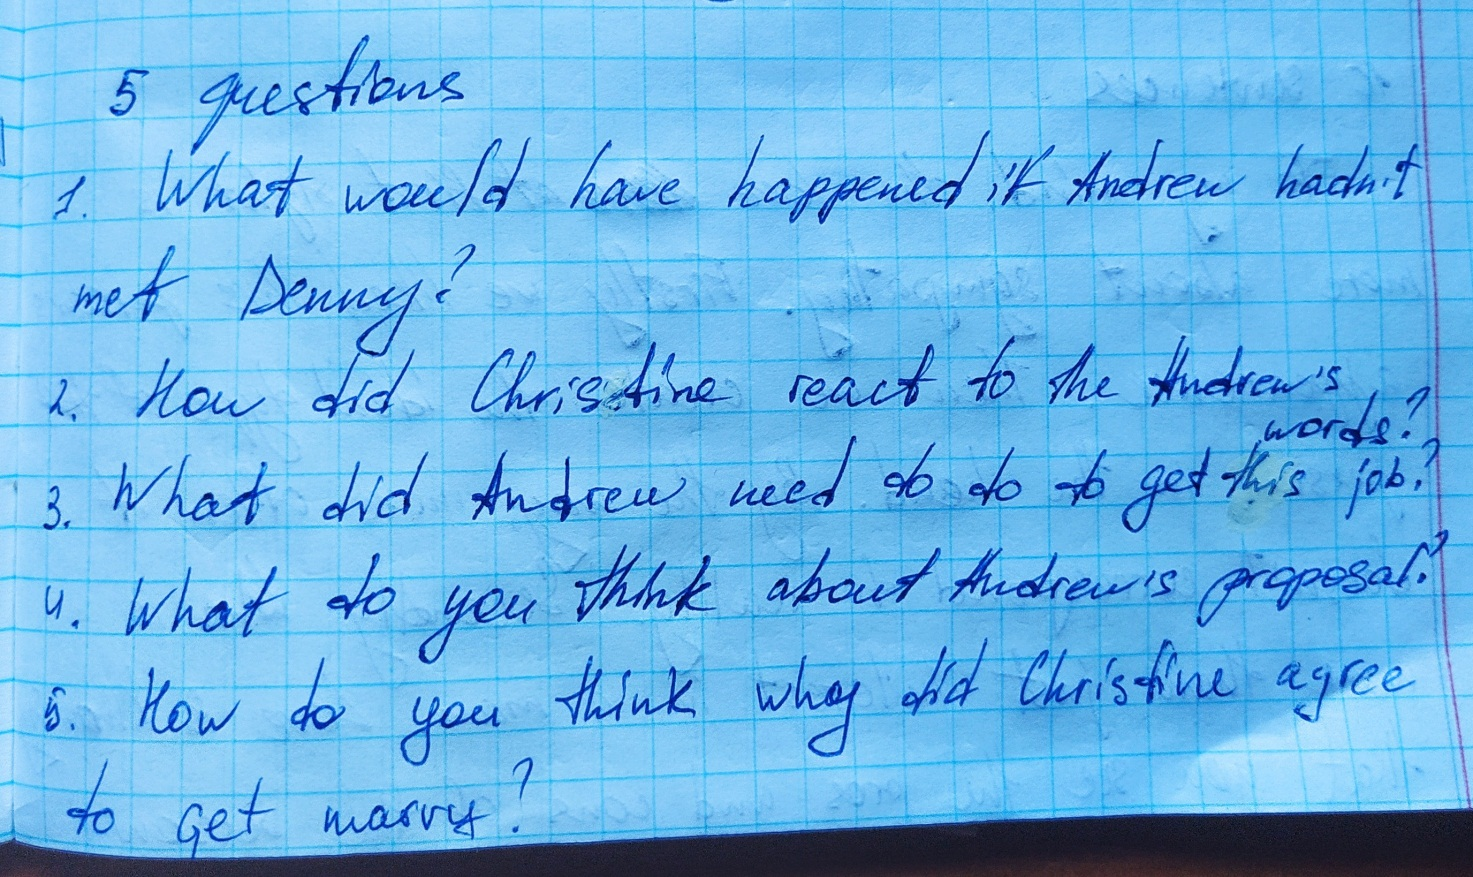 5 questions
1. What would have happened if Andrew hadn't
met Denny?
2. How did Christine react to the Andrew's
words?
3. What did Andrew need to do to get this job?
4. What do you think about Andrew's proposal?
5. How do you think why did Christine agree
to get marry?